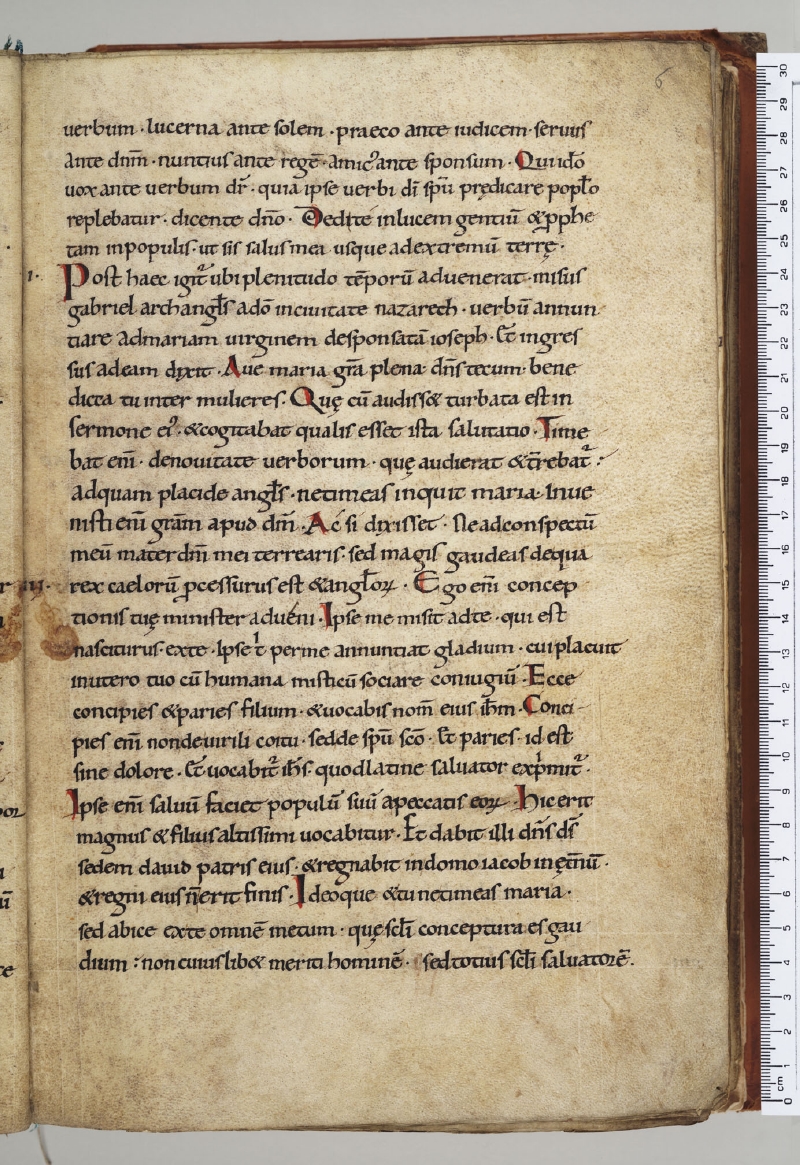 6
uerbum · lucerna ante solem · praeco ante iudicem · seruus
ante dnm̄ · nuntius ante regē · amic᾽ ante sponsum · Qui ido
uox ante uerbum dr̄ · quia ipse uerbi dī spū prędicare poplo
replebatur · dicente dn̄o · Dedi te in lucem gentiū & pphe
tam in populis · ut sis salus mea usque ad extremū terrę ·
1 · Post haec igit᷑ ubi plenitudo tēporū aduenerat · misus
gabriel archangl̄s a dō in ciuitate nazareth · uerbū annun
tiare ad mariam uirginem desponsatā ioseph · Et ingres
sus ad eam dixit · Aue maria grā plena dn̄s tecum · bene
dicta tu inter mulieres · Quę cū audiss& turbata est in
sermone ei᾽ · & cogitabat qualis esset ista salutatio · Time
bat em̄ · de nouitate uerborum · quę audierat & t̄rebat᷑ :
ad quam placide angl̄s · ne timeas inquit maria · Inue
nisti em̄ grām apud dm̄ · Ac si dixisset · Ne ad conspectū
meū mater dn̄i mei terrearis · sed magis gaudeas de qua
rex caelorū pcessurus est & angl̄oꝝ · Ego em̄ concep
tionis tuę minister adueni · Ipse me misit ad te · qui est
nasciturus · ex te · Ipse t̄ per me annuntiat gladium · cui placuit
in utero tuo cū humana misticū sociare coniugiū · Ecce
concipies & paries filium · & uocabis nom̄ eius ih̄m · Conci
pies em̄ non de uirili coitu · sed de spū scō · Et paries · id est
sine dolore · Et uocabit᷑ ih̄s · quod latine saluator exp̄mit᷑ ·
Ipse em̄ saluū faciet populū suū a peccatis eoꝝ · Hic erit
magnus & filius altissimi uocabitur · Et dabit illi dn̄s ds̄
sedem dauid patris eius · & regnabit in domo iacob in ęt̄nū ·
& regni eius n̄ erit finis · Ideoque & tu ne timeas maria ·
sed abice ex te omnē metum · quę scl̄i conceptura es gau
dium : non cuiuslib& meriti hominē · sed totius scl̄i saluatorē ·